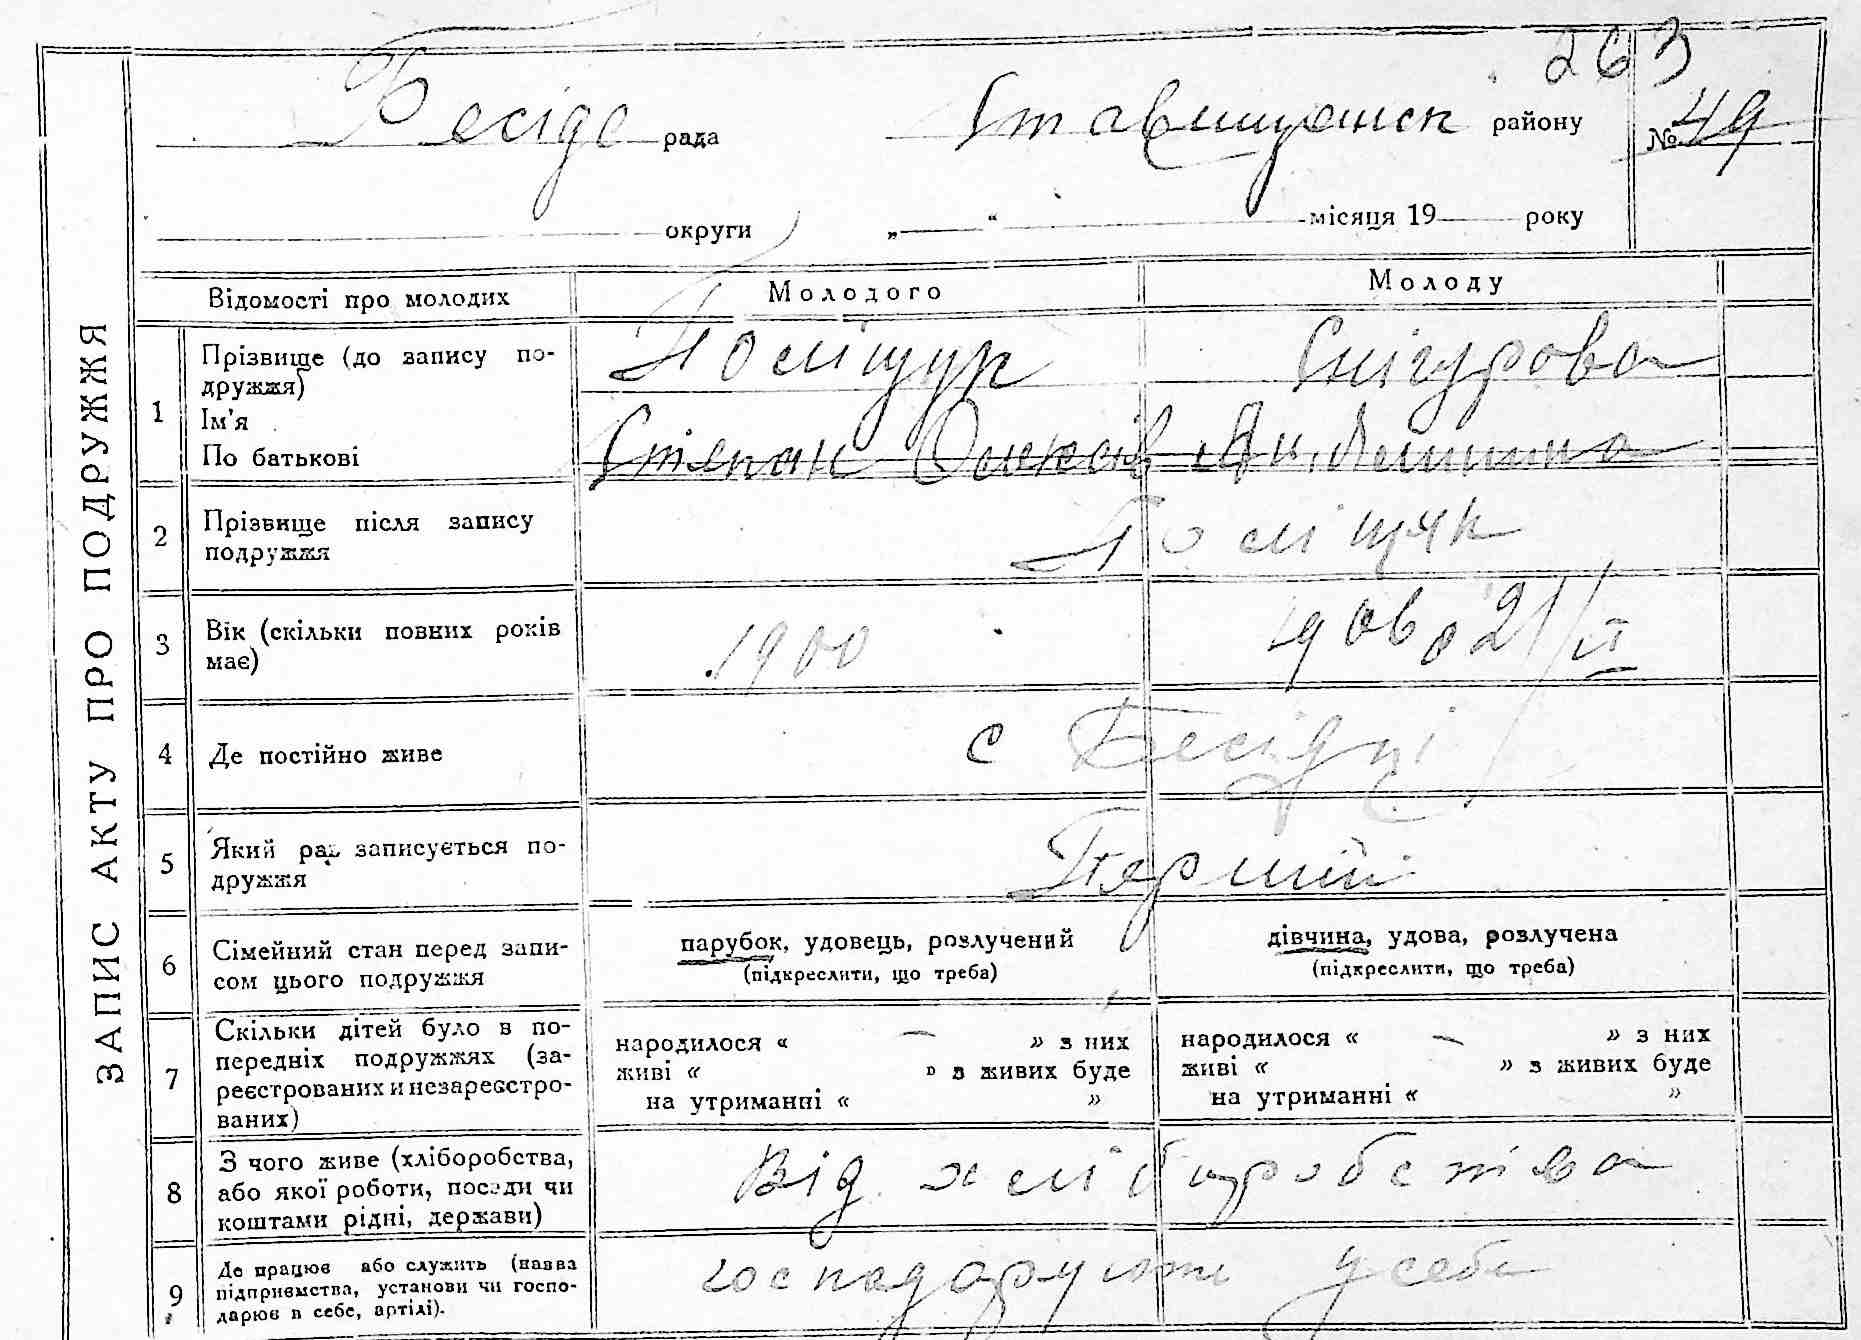 263
Бесідс рада Ставищенск району № 49
округи „ “ місяця 19 року
ЗАПИС АКТУ ПРО ПОДРУЖЖЯ
Відомості про молодих Молодого Молоду
1 Прізвище (до запису подружжя) Поліщук Снігурова
Ім'я
По батькові Стяпан
2 Прізвище після запису подружжя Поліщук
3 Вік (скільки повних років має) 1900 1906 р 21/II
4 Де постійно живе с Бесідці
5 Який раз записується подружжя Перший
6 Сімейний стан перед записом цього подружжя парубок, удовець, розлучений дівчина, удова, розлучена
(підкреслити, що треба) (підкреслити, що треба)
7 Скільки дітей було в попередніх подружжях (зареєстрованих и незареєстрованих)
народилося « — » з них народилося « — » з них
живі « » з живих буде живі « » з живих буде
на утриманні « » на утриманні « »
8 З чого живе (хліборобства, або якої роботи, посади чи коштами рідні, держави) Від хлібороб ства
9 Де працює або служить (назва підприємства, установи чи господарює в себе, артілі). у себе